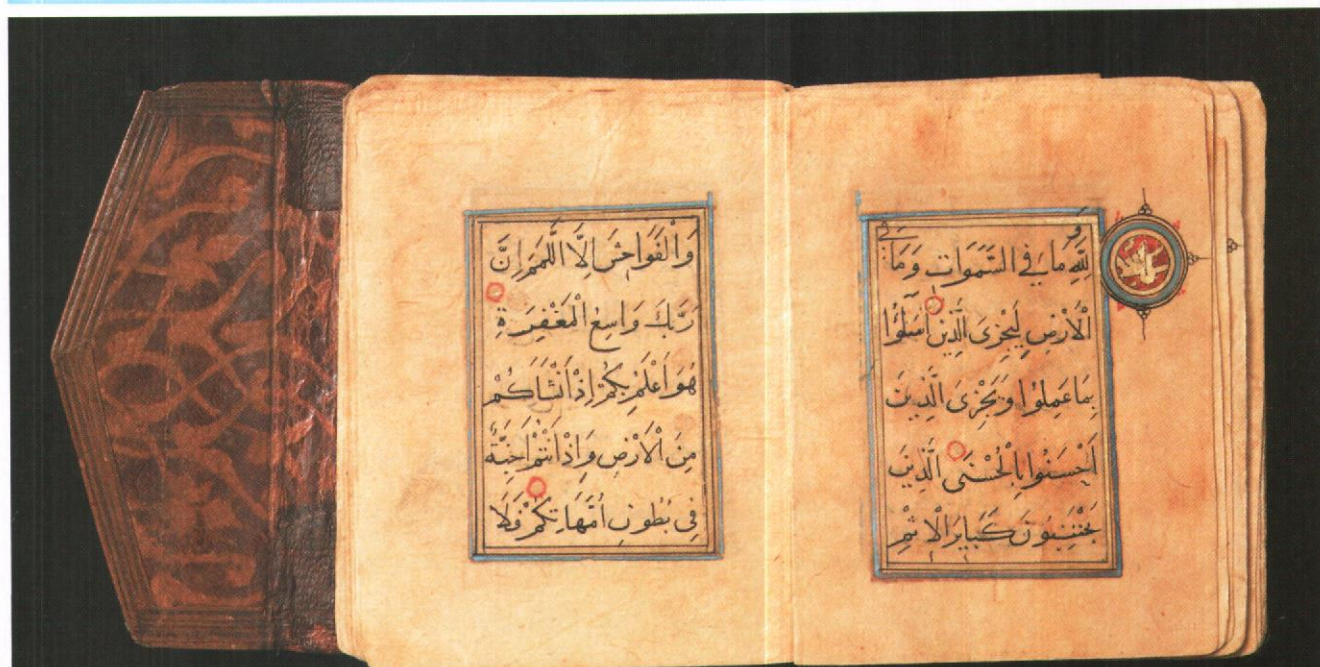 لِلّٰهِ مَا فِي السَّمَوَاتِ وَمَا فِي
الْاَرْضِ لِيَجْزِىَ الَّذِينَ اَسَآؤُا
بِمَا عَمِلُوا وَيَجْزِىَ الَّذِينَ
اَحْسَنُوا بِالْحُسْنَى الَّذِينَ
يَجْتَنِبُونَ كَبَايِرَ الْاِثْمِ
وَالْفَوَاحِشَ اِلَّا اللَّمَمَ اِنَّ
رَبَّكَ وَاسِعُ الْمَغْفِرَةِ
هُوَ اَعْلَمُ بِكُمْ اِذْ اَنْشَاَكُمْ
مِنَ الْاَرْضِ وَاِذْ اَنْتُمْ اَجِنَّةٌ
فِى بُطُونِ اُمَّهَاتِكُمْ فَلَا